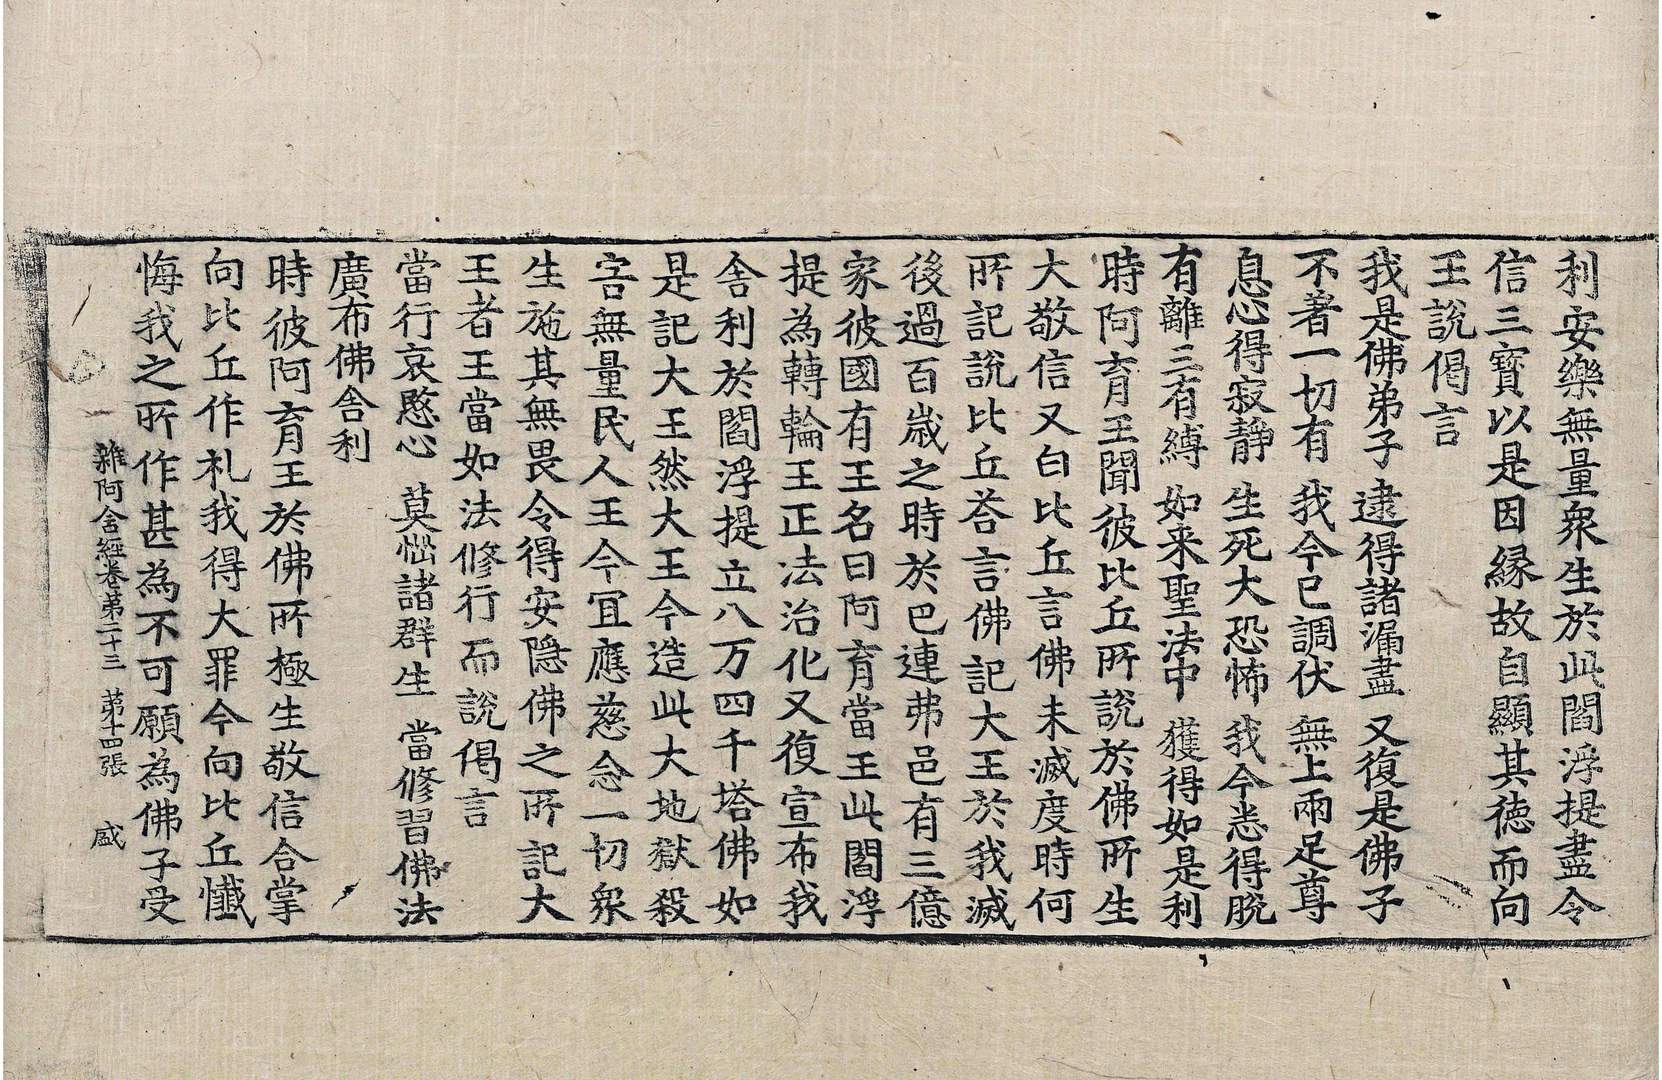 利安樂無量衆生於此閻浮提盡令
信三寶以是因縁故自顯其徳而向
王說偈言
我是佛弟子 逮得諸漏盡 又復是佛子
不著一切有 我今已調伏 無上兩足尊
息心得寂靜 生死大恐怖 我今悉得脫
有離三有縛 如来聖法中 獲得如是利
時阿育王聞彼比丘所說於佛所生
大敬信又白比丘言佛未滅度時何
所記說比丘荅言佛記大王於我滅
後過百歲之時於巴連弗邑有三億
家彼國有王名曰阿育當王此閻浮
提為轉輪王正法治化又復宣布我
舍利於閻浮提立八万四千塔佛如
是記大王然大王今造此大地獄殺
害無量民人王今冝應慈念一切衆
生施其無畏令得安隠佛之所記大
王者王當如法修行而說偈言
當行哀愍心 莫惱諸群生 當修習佛法
廣布佛舍利
時彼阿育王於佛所極生敬信合掌
向比丘作札我得大罪今向比丘懺
悔我之所作甚為不可願為佛子受
雜阿含經卷第二十三 第十四張 盛